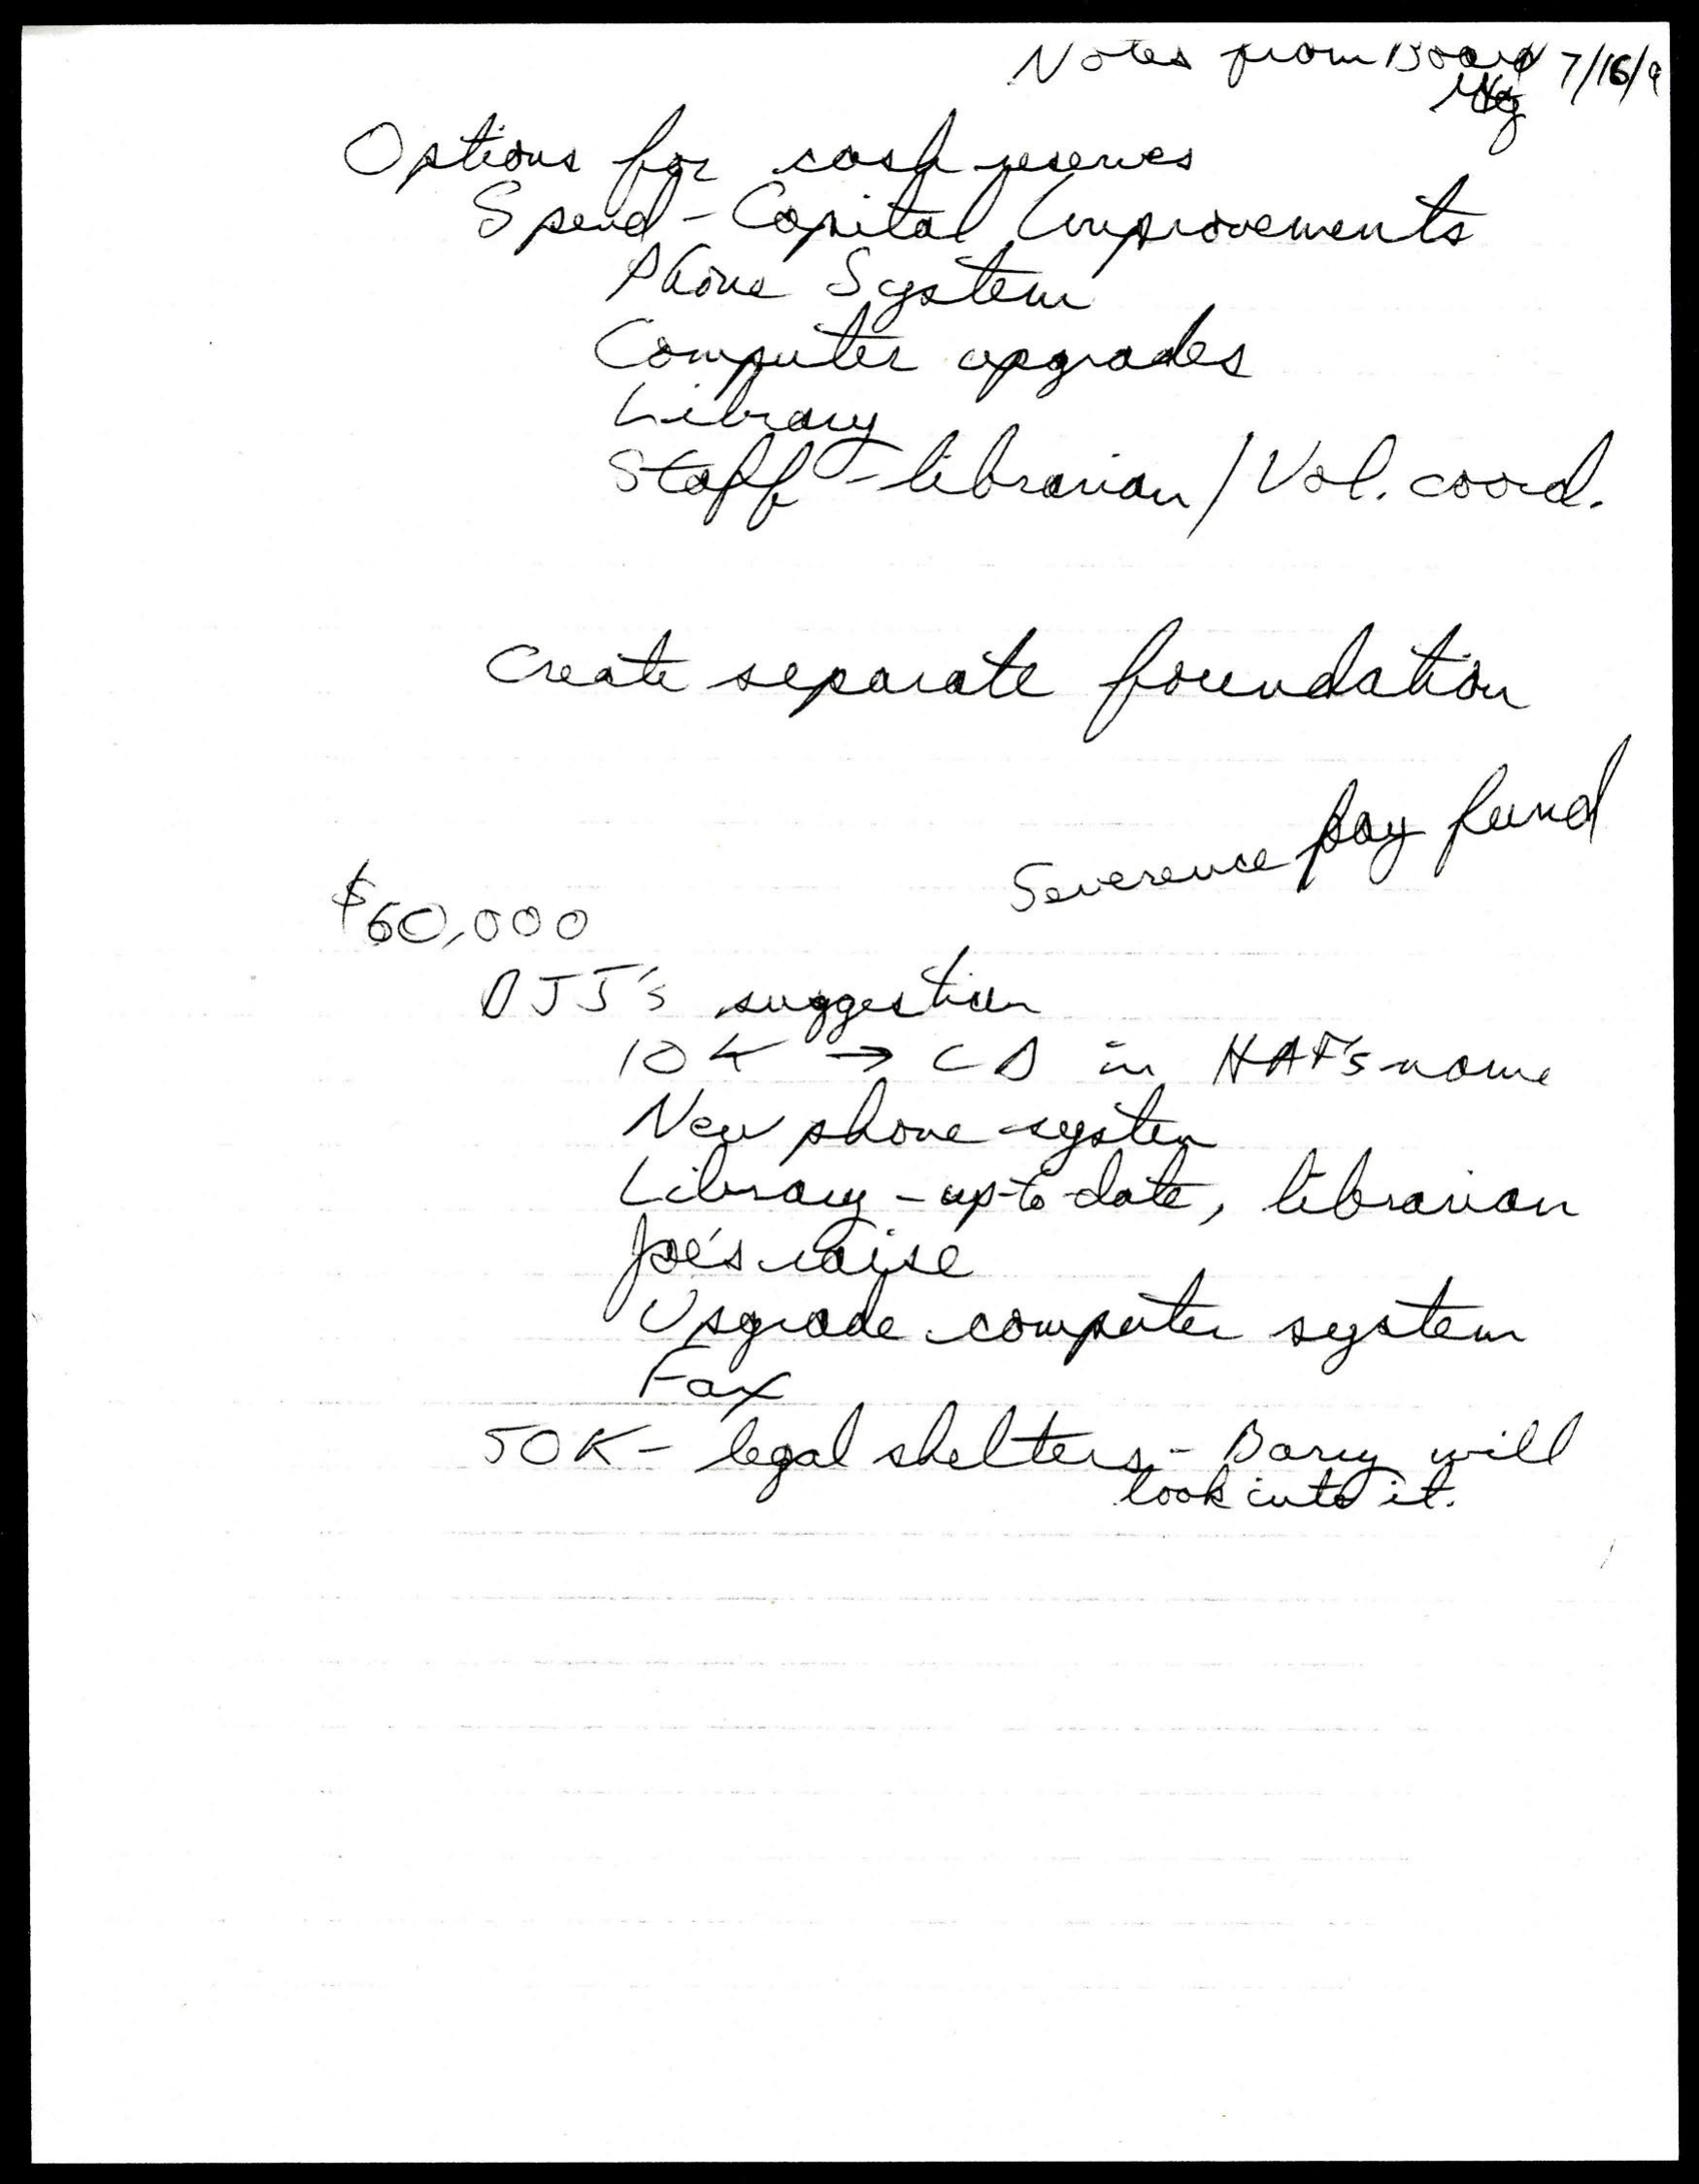 Notes from Board 7/16/9
Mtg
Options for cash reserves
Spend - Capital Improvements
Phone System
Computer upgrades
Library
Staff - librarian / Vol. coord.
Create separate foundation
Severence pay fund
$60,000
DJJ's suggestion
10K → CD in HAF's name
New phone system
Library - up-to-date, librarian
Joe's raise
Upgrade computer system
Fax
50K - legal shelters - Barry will
look into it.